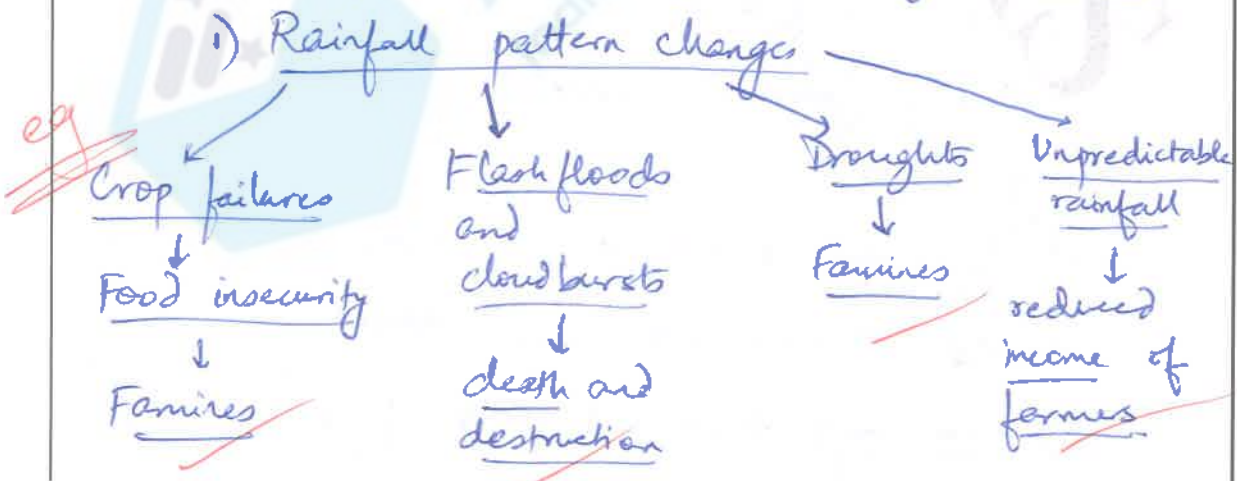 1) Rainfall pattern changes
eg
Crop failures
↓
Food insecurity
↓
Famines
Flash floods
and
cloudbursts
↓
death and
destruction
Droughts
↓
Famines
Unpredictable
rainfall
↓
reduced
income of
farmers